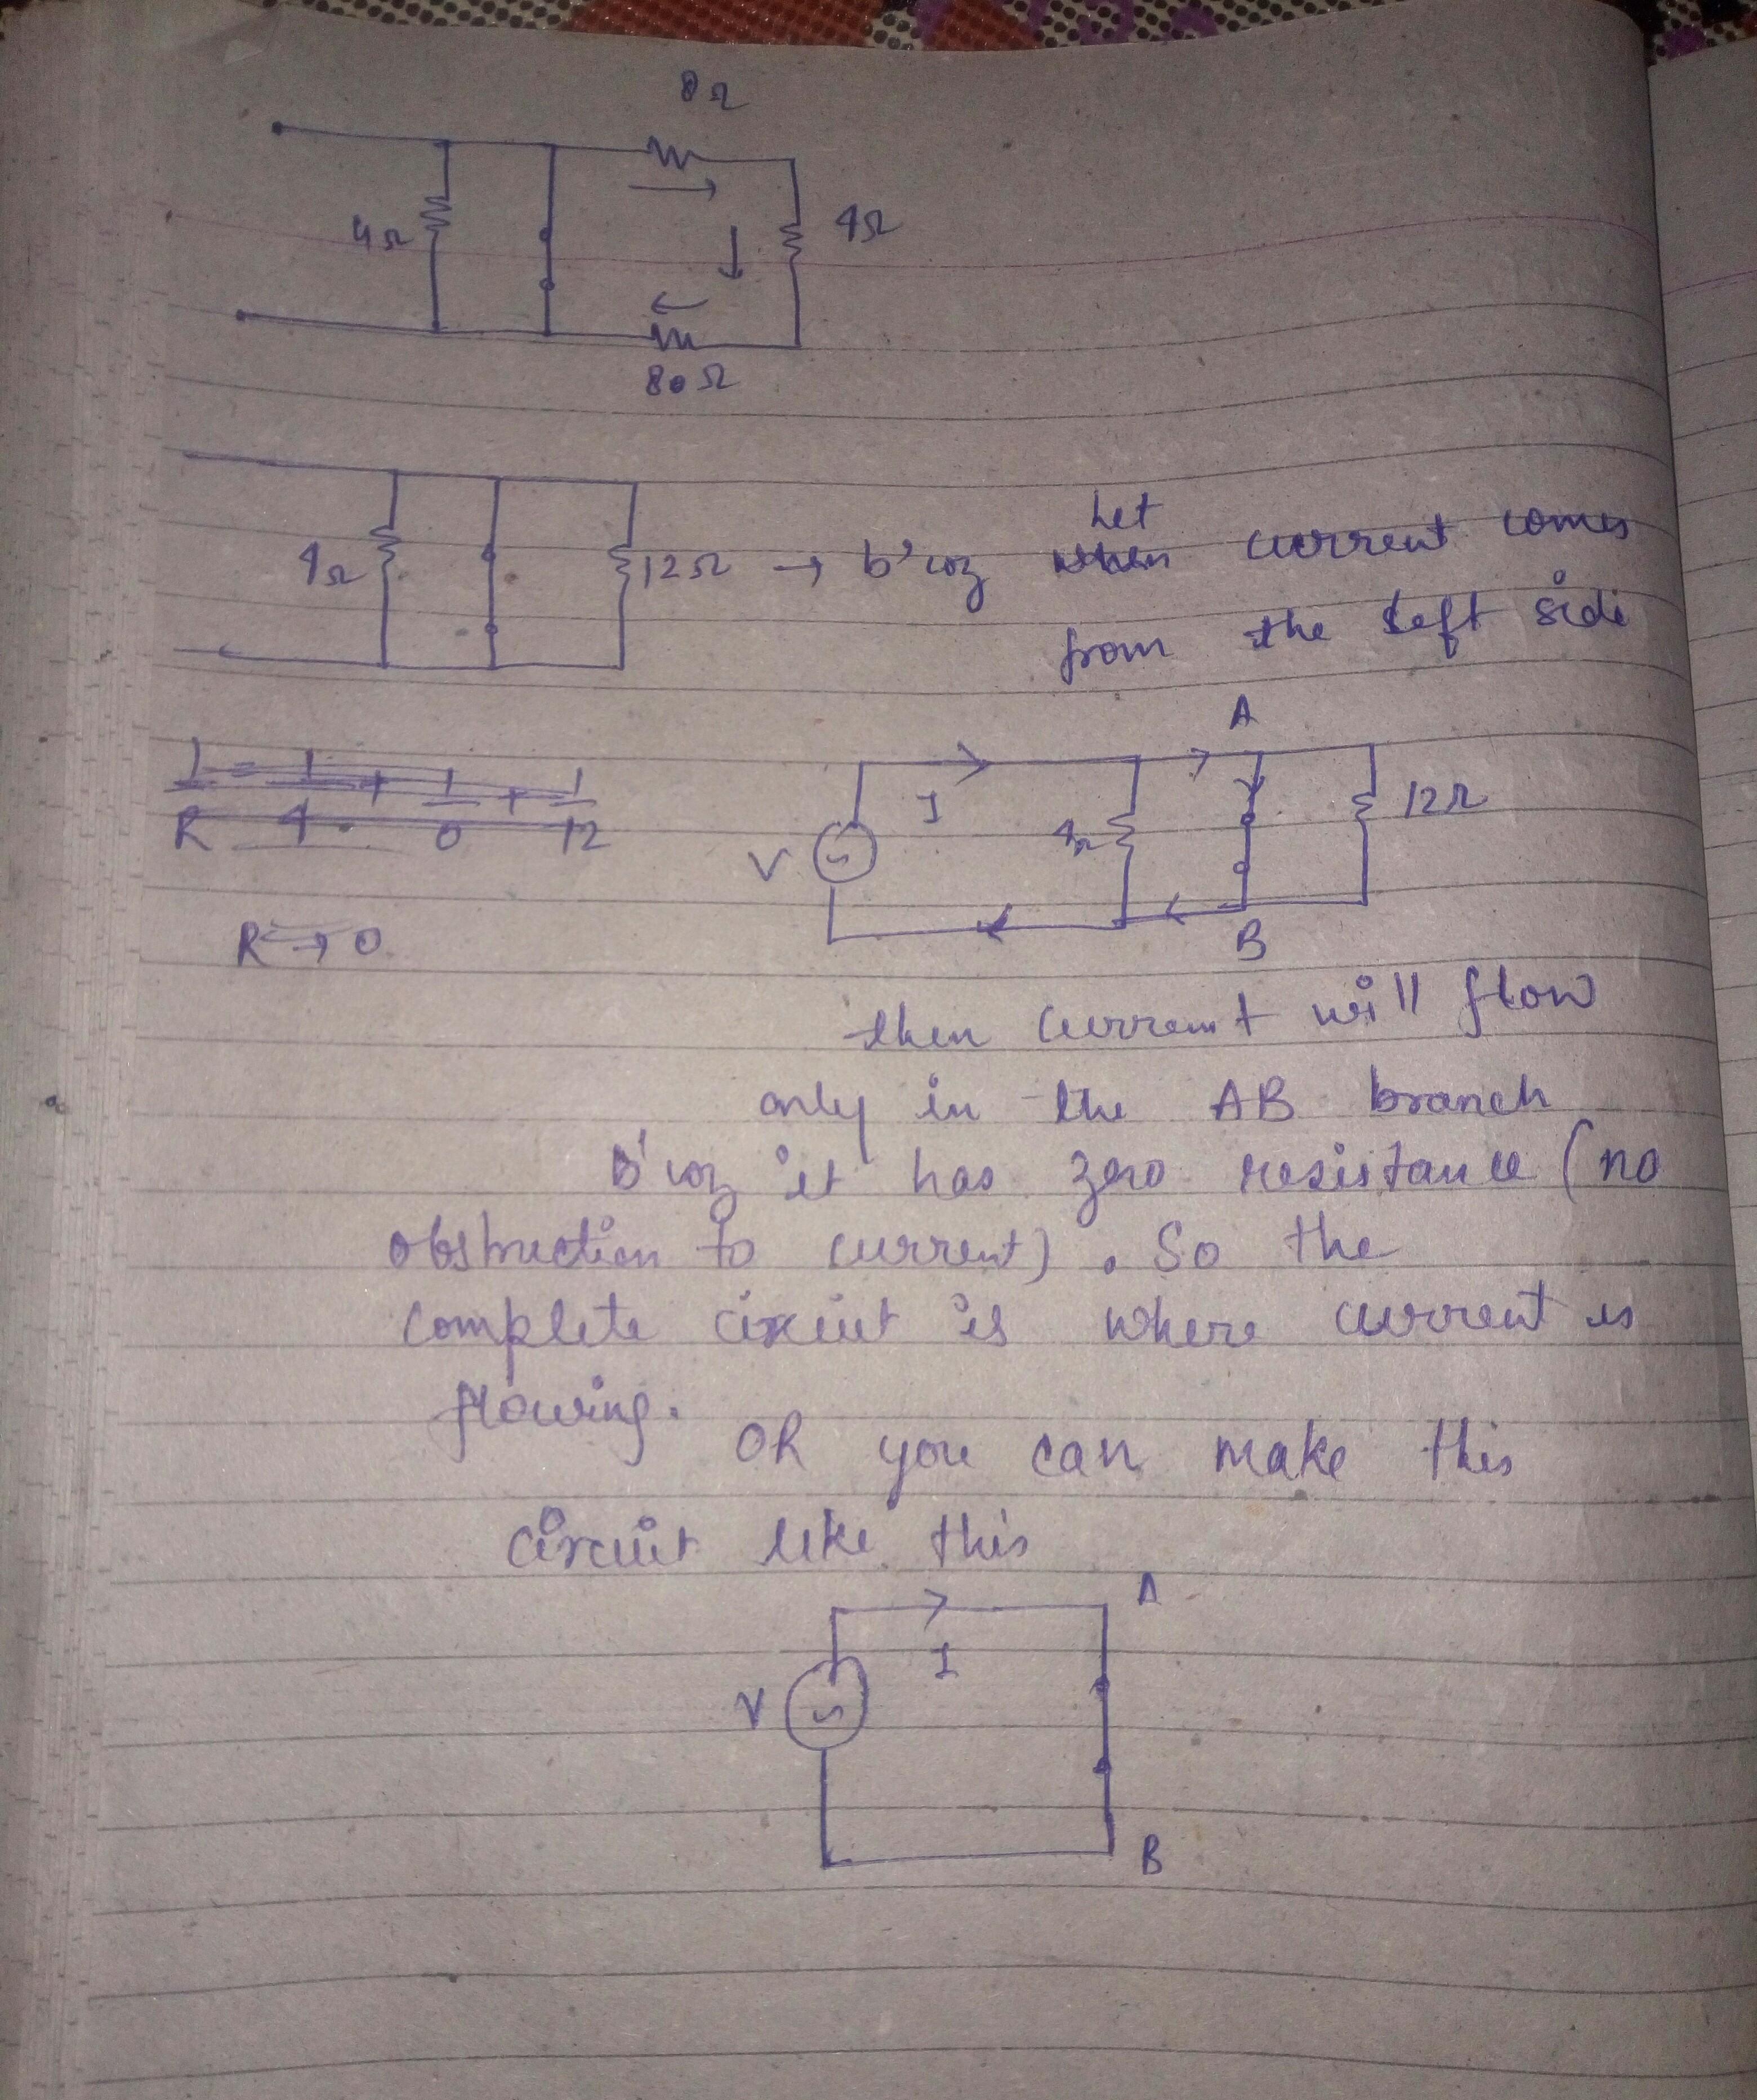 8Ω
4Ω
4Ω
80Ω
4Ω
12Ω → b'coz when current comes
Let
from the left side
1/R = 1/4 + 1/0 + 1/12
R → 0
A
I
V
4Ω
12Ω
B
then current will flow
only in the AB branch
B'coz it has zero resistance (no
obstruction to current). So the
complete circuit is where current is
flowing.
OR you can make this
circuit like this
A
I
V
B